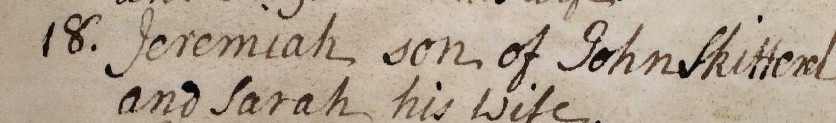 18. Jeremiah son of John Skitterel
and Sarah his wife.